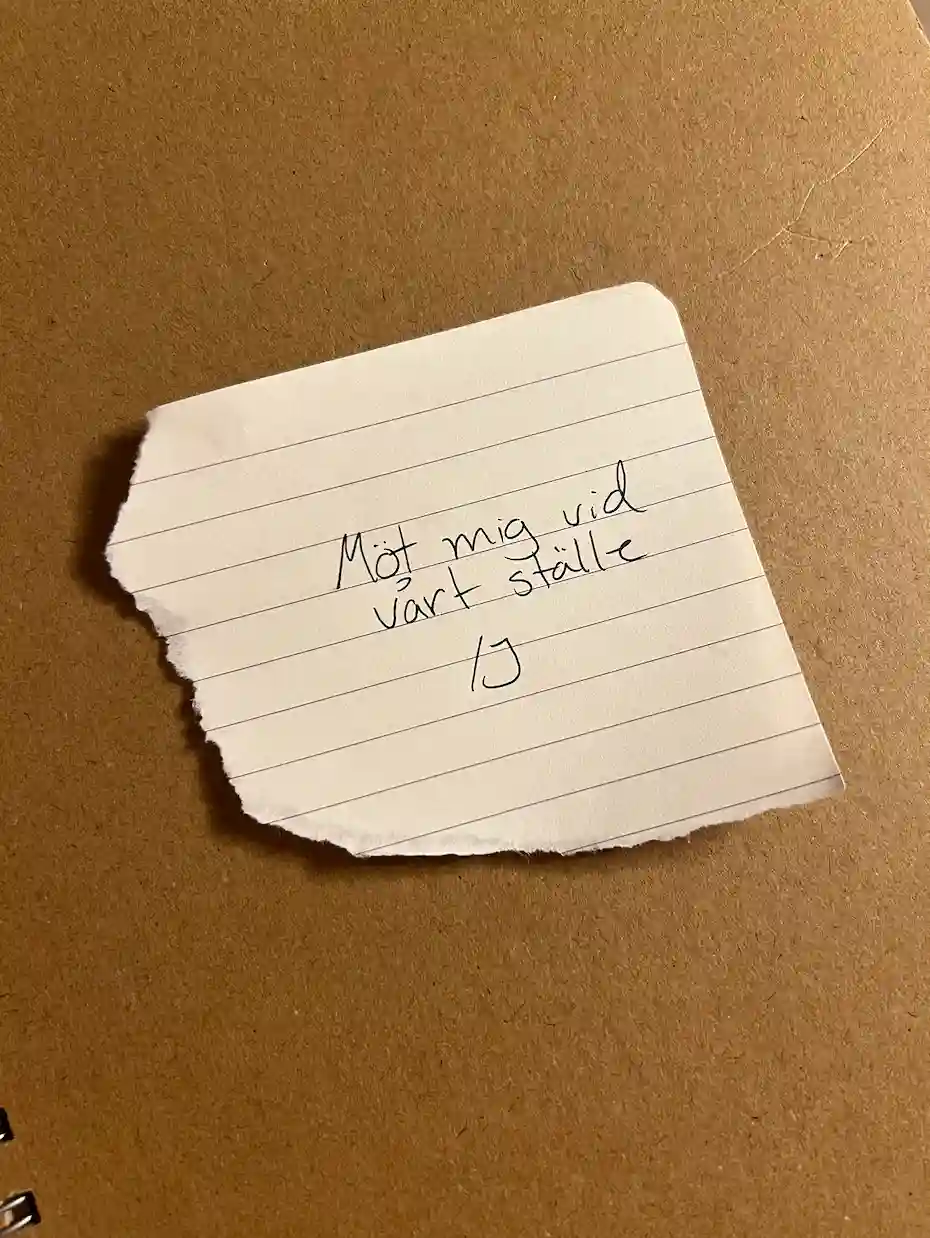 Möt mig vid
vårt ställe
/J